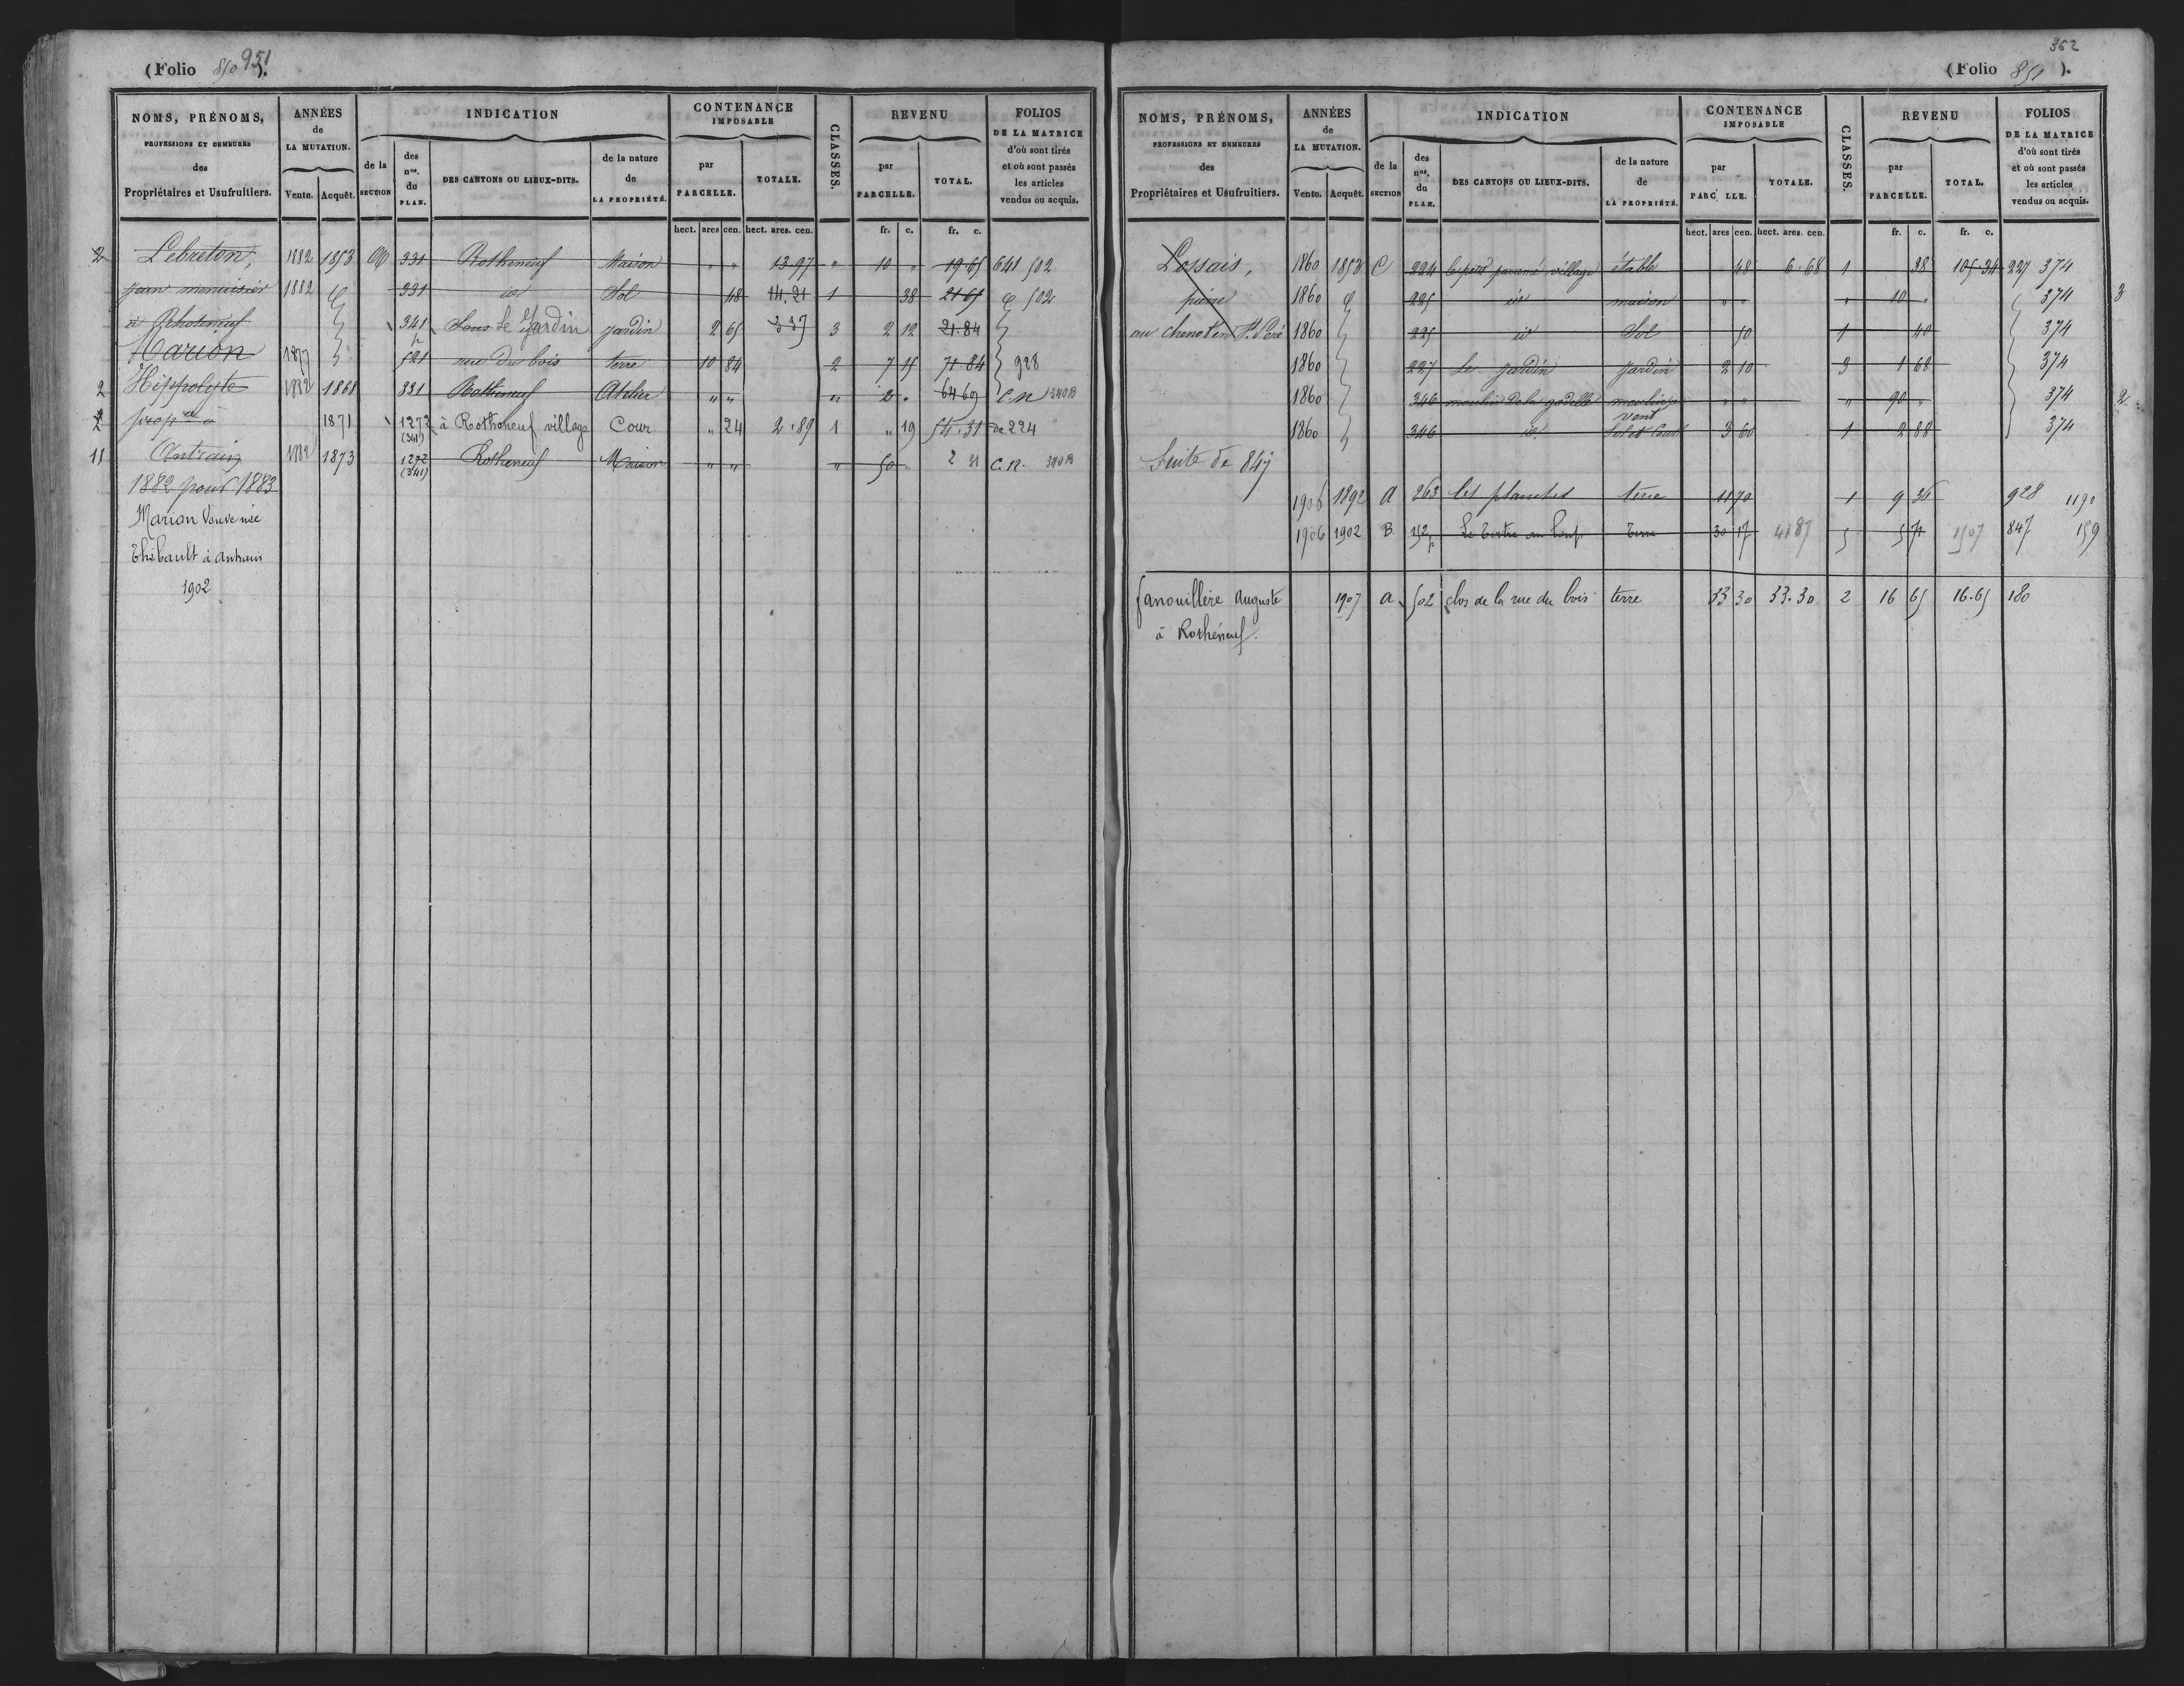 (Folio 850 951).
NOMS, PRÉNOMS, PROFESSIONS ET DEMEURES des Propriétaires et Usufruitiers.
ANNÉES de LA MUTATION. Vente. Acquêt.
INDICATION de la SECTION des nos. du PLAN. DES CANTONS OU LIEUX-DITS. de la nature de LA PROPRIÉTÉ.
CONTENANCE IMPOSABLE par PARCELLE. TOTALE.
CLASSES.
REVENU par PARCELLE. TOTAL.
FOLIOS DE LA MATRICE d'où sont tirés et où sont passés les articles vendus ou acquis.
hect. ares cen. hect. ares. cen. fr. c. fr. c.
2 Lebreton, 1882 1853 331 Rotheneuf Maison " " 13.97 " 10 " 19.65 641 502
jean menuisier 1882 331 id Sol 48 14.21 1 38 21.65 502
à Rhoteneuf 341 p Sous Le Jardin jardin 2 65 3 37 3 2 12 21.84
Marion 1877 521 rue du bois terre 10 84 2 7 15 71.84 928
2 Hippolyte 1882 1868 331 Rotheneuf Atelier " " " 2 " 64 69 C.N 340B
2 propre à 1871 1272 (341) à Rothoneuf village Cour " 24 2.89 1 " 19 54.31 de 224
11 Antrain 1882 1873 1272 (341) Rotheneuf Maison " " " 50 " 2 31 C.N. 340B
1882 pour 1883
Marion Veuve née
Thébault à Antrain
1902
362
(Folio 851).
NOMS, PRÉNOMS, PROFESSIONS ET DEMEURES des Propriétaires et Usufruitiers.
ANNÉES de LA MUTATION. Vente. Acquêt.
INDICATION de la SECTION des nos. du PLAN. DES CANTONS OU LIEUX-DITS. de la nature de LA PROPRIÉTÉ.
CONTENANCE IMPOSABLE par PARC LLE. TOTALE.
CLASSES.
REVENU par PARCELLE. TOTAL.
FOLIOS DE LA MATRICE d'où sont tirés et où sont passés les articles vendus ou acquis.
hect. ares cen. hect. ares. cen. fr. c. fr. c.
Lossais, 1860 1853 C 224 le petit paramé village étable 48 6.68 1 38 105 34 227 374
pierre 1860 225 id maison " " " 10 " 374 3
au chenot en St Père 1860 225 id Sol 50 1 40 374
1860 227 Le jardin jardin 2 10 3 1 68 374
1860 346 moulin de la godelle moulin à vent " " " 90 " 374 2
1860 346 id. Sol et Cour 3 60 1 2 88 374
Suite de 847
1906 1892 A 263 les planches terre 11 70 1 9 36 928 1190
1906 1902 B 152 p Le Tertre au Loup Terre 30 17 41 87 5 5 71 15 07 847 159
fanouillère Auguste 1907 a 502 clos de la rue du bois terre 33 30 33.30 2 16 65 16.65 180
à Rothéneuf.